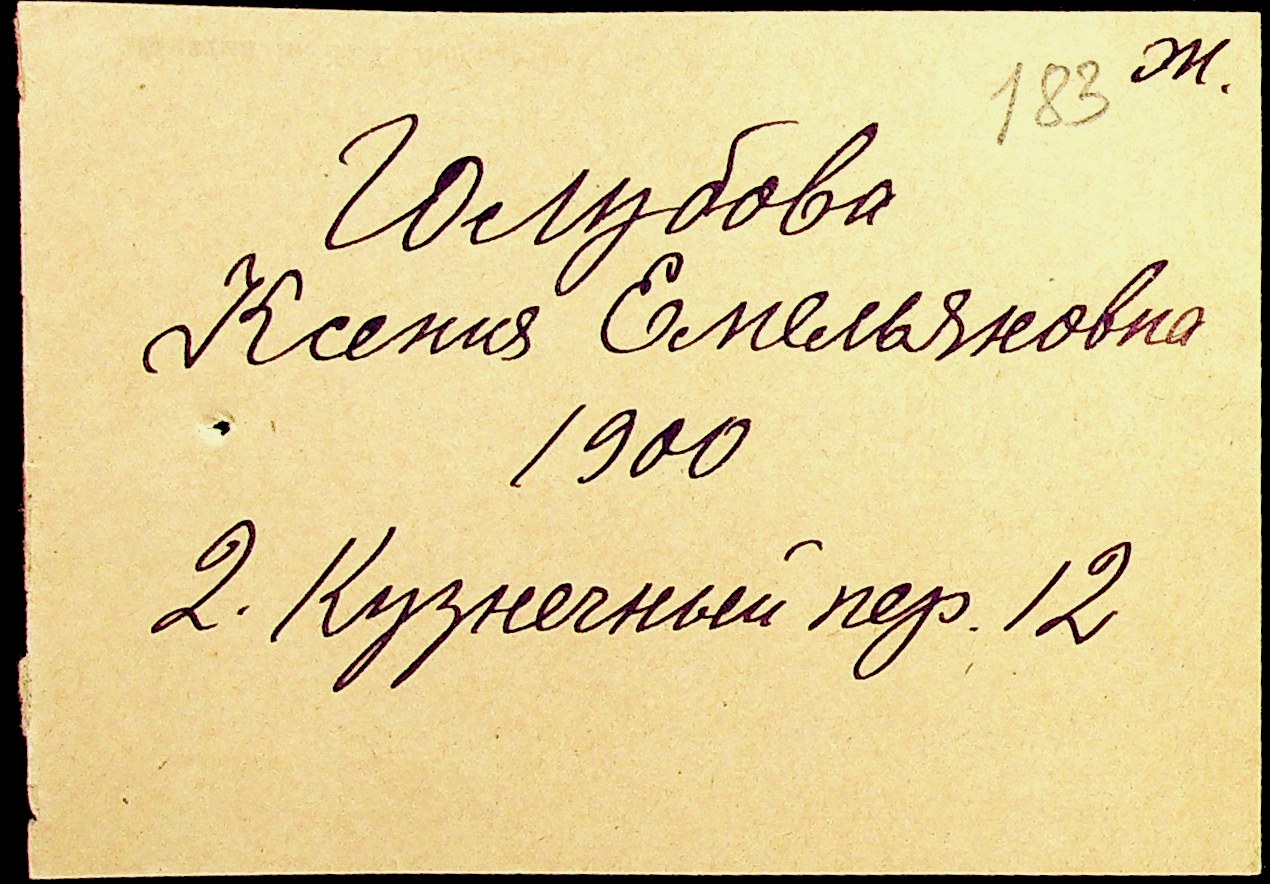 183 ж.
Голубова
Ксения Емельяновна
1900
2. Кузнечный пер. 12